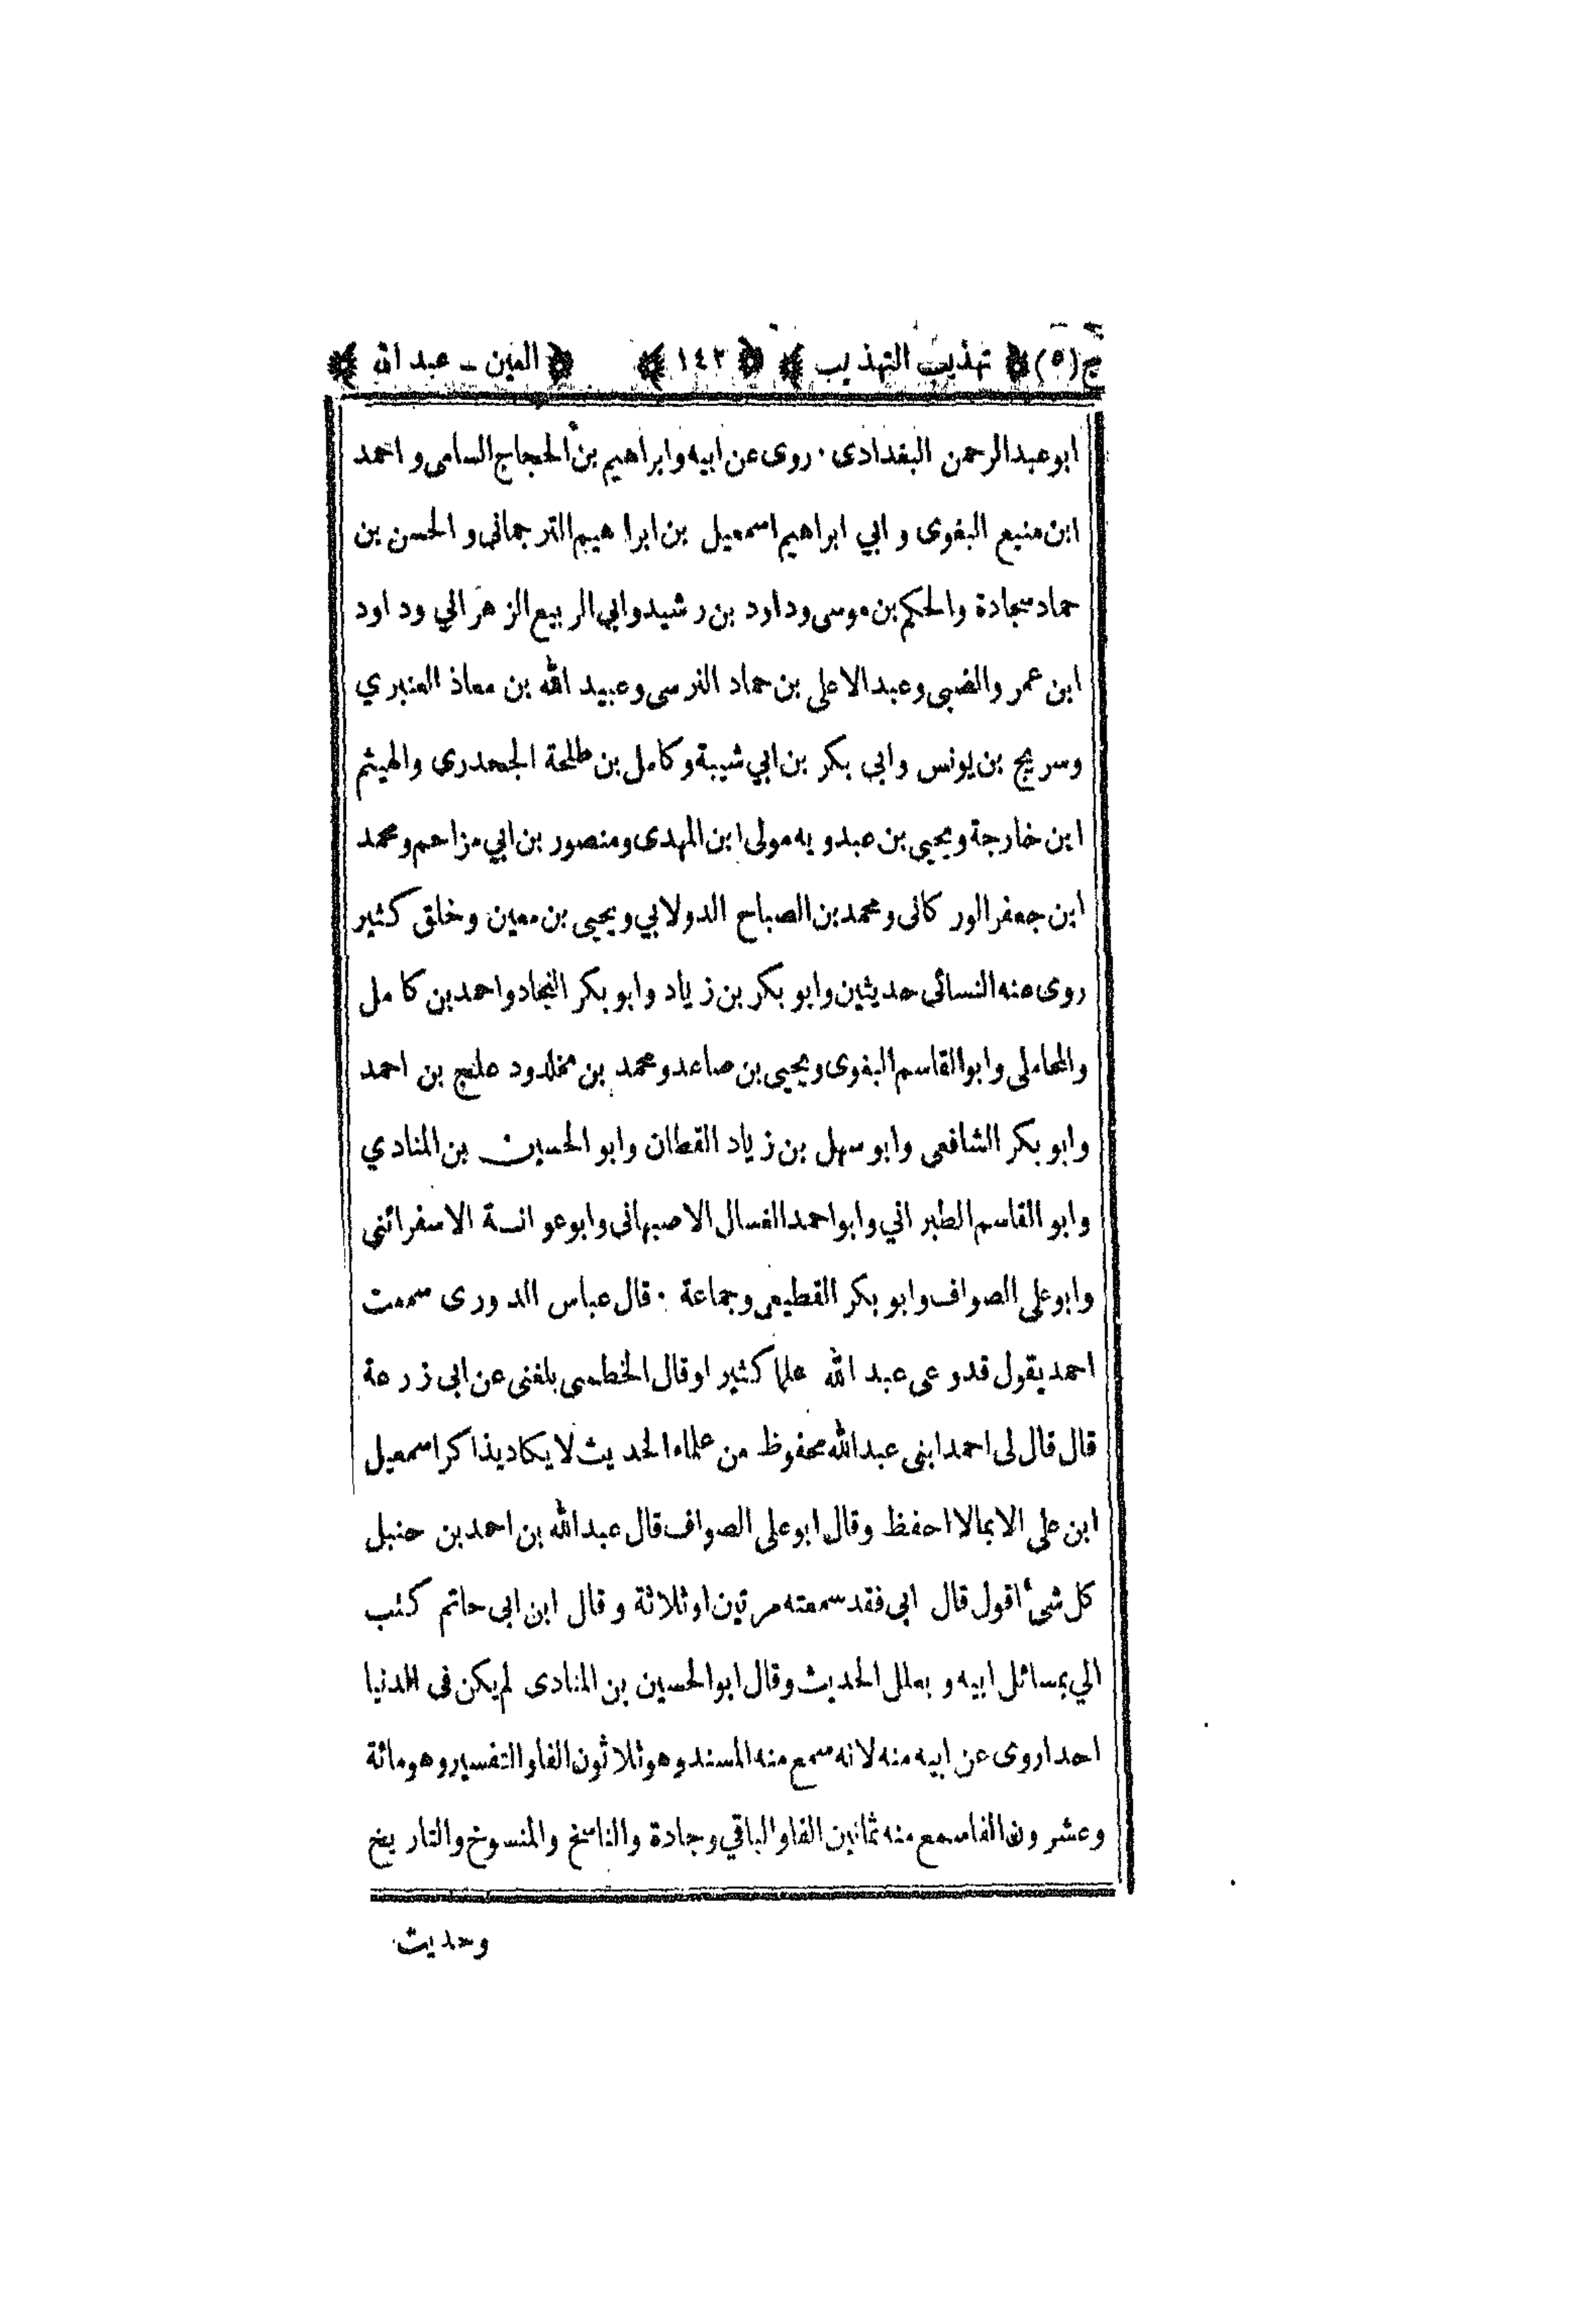 ج(٥) ﴿ تهذيب التهذيب ﴾ ﴿ ١٤٢ ﴾ ﴿ العين ــ عبد الله ﴾
ابوعبدالرحمن البغدادى · روى عن ابيه وابراهيم بن الحجاج السامى و احمد
ابن منيع البغوى و ابي ابراهيم اسمعيل بن ابراهيم الترجمانى و الحسن بن
حماد سجادة والحكم بن موسى وداود بن رشيد وابي الربيع الزهرالي وداود
ابن عمر والضبى وعبد الاعلى بن حماد النرسى وعبيد الله بن معاذ العنبري
وسريج بن يونس وابي بكر بن ابي شيبة وكامل بن طلحة الجحدرى والهيثم
ابن خارجة ويحيى بن عبدويه مولى ابن المهدى ومنصور بن ابي مزاحم ومحمد
ابن جعفر الوركانى ومحمد بن الصباح الدولابي ويحيى بن معين وخلق كثير
روى عنه النسائى حديثين وابو بكر بن زياد وابو بكر النجاد واحمد بن كامل
والمحاملى وابو القاسم البغوى ويحيى بن صاعد ومحمد بن مخلد ود علج بن احمد
وابو بكر الشافعى وابو سهل بن زياد القطان وابو الحسين بن المنادي
وابو القاسم الطبراني وابو احمد العسال الاصبهانى وابوعوانة الاسفرائنى
وابوعلى الصواف وابو بكر القطيعى وجماعة · قال عباس الدورى سمعت
احمد يقول قد وعى عبد الله علما كثير اوقال الخطمى بلغنى عن ابى زرعة
قال قال لى احمد ابنى عبدالله محفوظ من علماء الحديث لا يكاد يذاكر اسمعيل
ابن على الا بما لا احفظ وقال ابوعلى الصواف قال عبدالله بن احمد بن حنبل
كل شىء اقول قال ابى فقد سمعته مرتين اوثلاثة و قال ابن ابى حاتم كتب
الي بمسائل ابيه و بعلل الحديث وقال ابو الحسين بن المنادى لم يكن فى الدنيا
احد اروى عن ابيه منه لانه سمع منه المسند وهو ثلاثون الفا والتفسير وهو مائة
وعشرون الفا سمع منه ثمانين الفا والباقي وجادة والناسخ والمنسوخ والتاريخ
وحديث